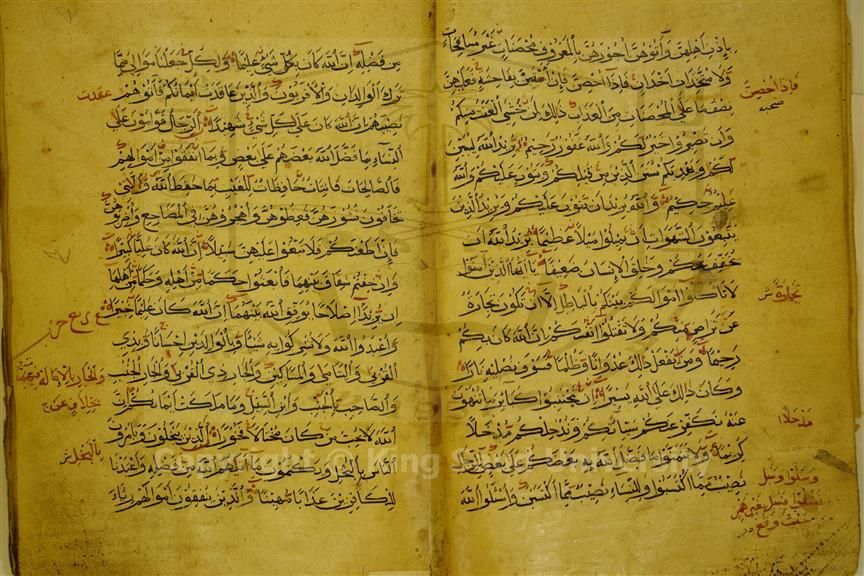 باذن اهلهن وآتوهن اجورهن بالمعروف محصنات غير مسافحات
ولا متخذات اخدان فاذا احصن فان اتين بفاحشة فعليهن
نصف ما على المحصنات من العذاب ذلك لمن خشى العنت منكم
وان تصبروا خير لكم والله غفور رحيم يريد الله ليبين
لكم ويهديكم سنن الذين من قبلكم ويتوب عليكم والله
عليم حكيم والله يريد ان يتوب عليكم ويريد الذين
يتبعون الشهوات ان تميلوا ميلا عظيما يريد الله ان
يخفف عنكم وخلق الانسان ضعيفا يا ايها الذين آمنوا
لا تاكلوا اموالكم بينكم بالباطل الا ان تكون تجارة
عن تراض منكم ولا تقتلوا انفسكم ان الله كان بكم
رحيما ومن يفعل ذلك عدوانا وظلما فسوف نصليه نارا
وكان ذلك على الله يسيرا ان تجتنبوا كبائر ما تنهون
عنه نكفر عنكم سيئاتكم وندخلكم مدخلا
كريما ولا تتمنوا ما فضل الله به بعضكم على بعض للرجال
نصيب مما اكتسبوا وللنساء نصيب مما اكتسبن واسئلوا الله
فاذا احصن
صحبة
تجارة
مدخلا
وسلوا وسل
من فضله ان الله كان بكل شيء عليما ولكل جعلنا موالي مما
ترك الوالدان والاقربون والذين عاقدت ايمانكم فآتوهم
نصيبهم ان الله كان على كل شيء شهيدا الرجال قوامون على
النساء بما فضل الله بعضهم على بعض وبما انفقوا من اموالهم
فالصالحات قانتات حافظات للغيب بما حفظ الله واللاتي
تخافون نشوزهن فعظوهن واهجروهن في المضاجع واضربوهن
فان اطعنكم فلا تبغوا عليهن سبيلا ان الله كان عليا كبيرا
وان خفتم شقاق بينهما فابعثوا حكما من اهله وحكما من اهلها
ان يريدا اصلاحا يوفق الله بينهما ان الله كان عليما خبيرا
واعبدوا الله ولا تشركوا به شيئا وبالوالدين احسانا وبذي
القربى واليتامى والمساكين والجار ذي القربى والجار الجنب
والصاحب بالجنب وابن السبيل وما ملكت ايمانكم ان
الله لا يحب من كان مختالا فخورا الذين يبخلون ويامرون
الناس بالبخل ويكتمون ما آتاهم الله من فضله واعتدنا
للكافرين عذابا مهينا والذين ينفقون اموالهم رئاء
عقدت
والجار بالامالة
بالبخل
Copyright © King Saud University